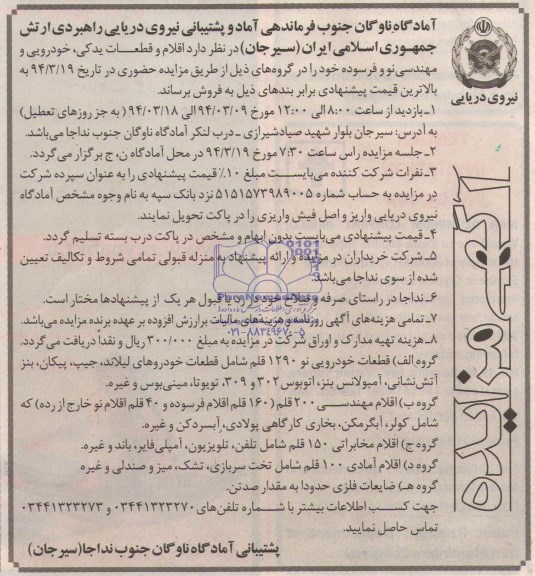 آمادگاه ناوگان جنوب فرماندهی آماد و پشتیبانی نیروی دریایی راهبردی ارتش
جمهوری اسلامی ایران (سیرجان) در نظر دارد اقلام و قطعات یدکی، خودرویی و
مهندسی نو و فرسوده خود را در گروه‌های ذیل از طریق مزایده حضوری در تاریخ ۹۴/۳/۱۹ به
بالاترین قیمت پیشنهادی برابر بندهای ذیل به فروش برساند.
نیروی دریایی
آگهی مزایده
۱ـ بازدید از ساعت ۸:۰۰ الی ۱۲:۰۰ مورخ ۹۴/۰۳/۰۹ الی ۹۴/۰۳/۱۸ (به جز روزهای تعطیل)
به آدرس: سیرجان بلوار شهید صیادشیرازی ـ درب لنگر آمادگاه ناوگان جنوب نداجا می‌باشد.
۲ـ جلسه مزایده راس ساعت ۷:۳۰ مورخ ۹۴/۳/۱۹ در محل آمادگاه ن، ج برگزار می‌گردد.
۳ـ نفرات شرکت کننده می‌بایست مبلغ ۱۰٪ قیمت پیشنهادی را به عنوان سپرده شرکت
در مزایده به حساب شماره ۵۱۵۱۵۷۳۹۸۹۰۰۵ نزد بانک سپه به نام وجوه مشخص آمادگاه
نیروی دریایی واریز و اصل فیش واریزی را در پاکت تحویل نمایند.
۴ـ قیمت پیشنهادی می‌بایست بدون ابهام و مشخص در پاکت درب بسته تسلیم گردد.
۵ـ شرکت خریداران در مزایده و ارائه پیشنهاد به منزله قبولی تمامی شروط و تکالیف تعیین
شده از سوی نداجا می‌باشد.
۶ـ نداجا در راستای صرفه و صلاح خود در رد یا قبول هر یک از پیشنهادها مختار است.
۷ـ تمامی هزینه‌های آگهی روزنامه و هزینه‌های مالیات بر ارزش افزوده بر عهده برنده مزایده می‌باشد.
۰۲۱-۸۸۳۴۹۶۷۰-۵
۸ـ هزینه تهیه مدارک و اوراق شرکت در مزایده به مبلغ ۳۰۰/۰۰۰ ریال و نقداً دریافت می‌گردد.
گروه الف) قطعات خودرویی نو ۱۲۹۰ قلم شامل قطعات خودروهای لیلاند، جیپ، پیکان، بنز
آتش‌نشانی، آمبولانس بنز، اتوبوس ۳۰۲ و ۳۰۹، تویوتا، مینی‌بوس و غیره.
گروه ب) اقلام مهندسی ۲۰۰ قلم (۱۶۰ قلم اقلام فرسوده و ۴۰ قلم اقلام نو خارج از رده) که
شامل کولر، آبگرمکن، بخاری کارگاهی پولادی، آبسردکن و غیره.
گروه ج) اقلام مخابراتی ۱۵۰ قلم شامل تلفن، تلویزیون، آمپلی‌فایر، باند و غیره.
گروه د) اقلام آمادی ۱۰۰ قلم شامل تخت سربازی، تشک، میز و صندلی و غیره
گروه هـ) ضایعات فلزی حدودا به مقدار صدتن.
جهت کسب اطلاعات بیشتر با شماره تلفن‌های ۰۳۴۴۱۳۲۳۲۷۰ و ۰۳۴۴۱۳۲۳۲۷۳
تماس حاصل نمایید.
پشتیبانی آمادگاه ناوگان جنوب نداجا (سیرجان)